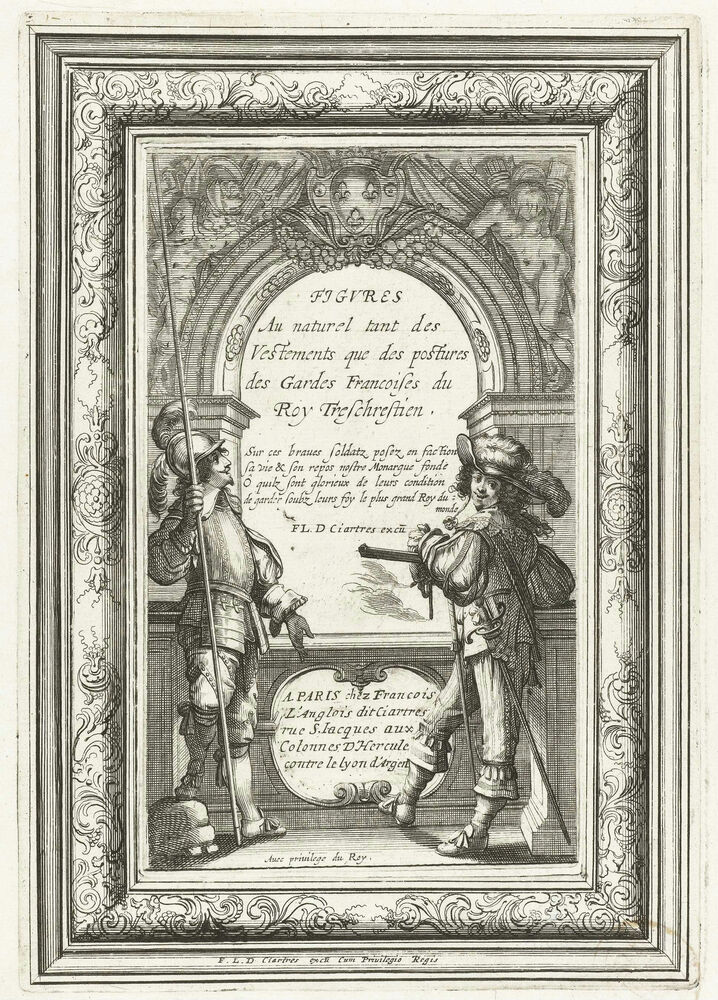 FIGVRES
Au naturel tant des
Vestements que des postures
des Gardes Francoises du
Roy Treschrestien.
Sur ces braues soldatz posez en faction
sa vie & son repos nostre Monarque fonde
O quilz sont glorieux de leurs condition
de garder soubz leurs foy le plus grand Roy du
monde
F L. D Ciartres excū
A PARIS chez Francois
L'Anglois dit Ciartres
rue S. Iacques aux
Colonnes D'Hercule
contre le lyon d'Argen
Auec priuilege du Roy.
F. L. D Ciartres excū Cum Priuilegio Regis